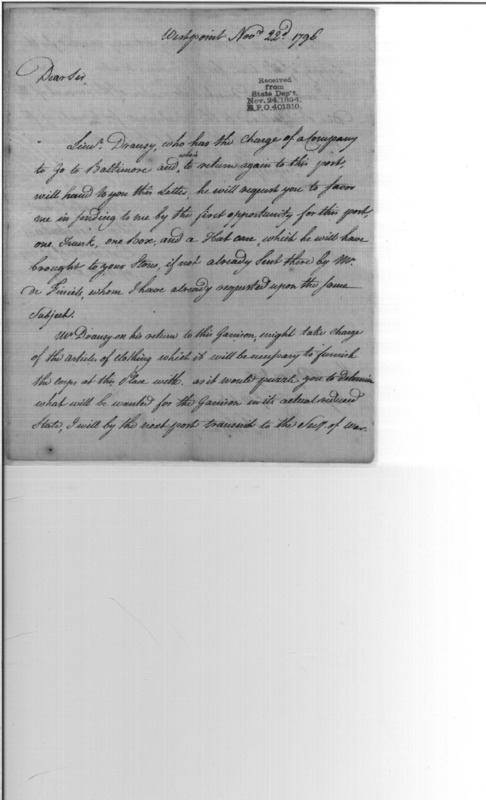 Westpoint Novr. 22d. 1796
Dear Sir
Received
from
State Dep't.
Nov. 24, 1894,
R.P.O. 401310.
Lieut. Dransy, who has the charge of a Company
to go to Baltimore and, to return again to this port,
will hand to you this Letter, he will request you to favor
me in sending to me by the first opportunity for this port,
one Trunk, one box, and a Hat case, which he will have
brought to your Stores, if not already sent there by Mr.
de Finiels, whom I have already requested upon the same
Subject.
Mr. Dransy on his return to this Garrison, might take charge
of the articles of clothing which it will be necessary to furnish
the corps at this Place with, as it would you to determine
what will be wanted for the Garrison in its actual reduced
State, I will by the next post transmit to the Secy. of War